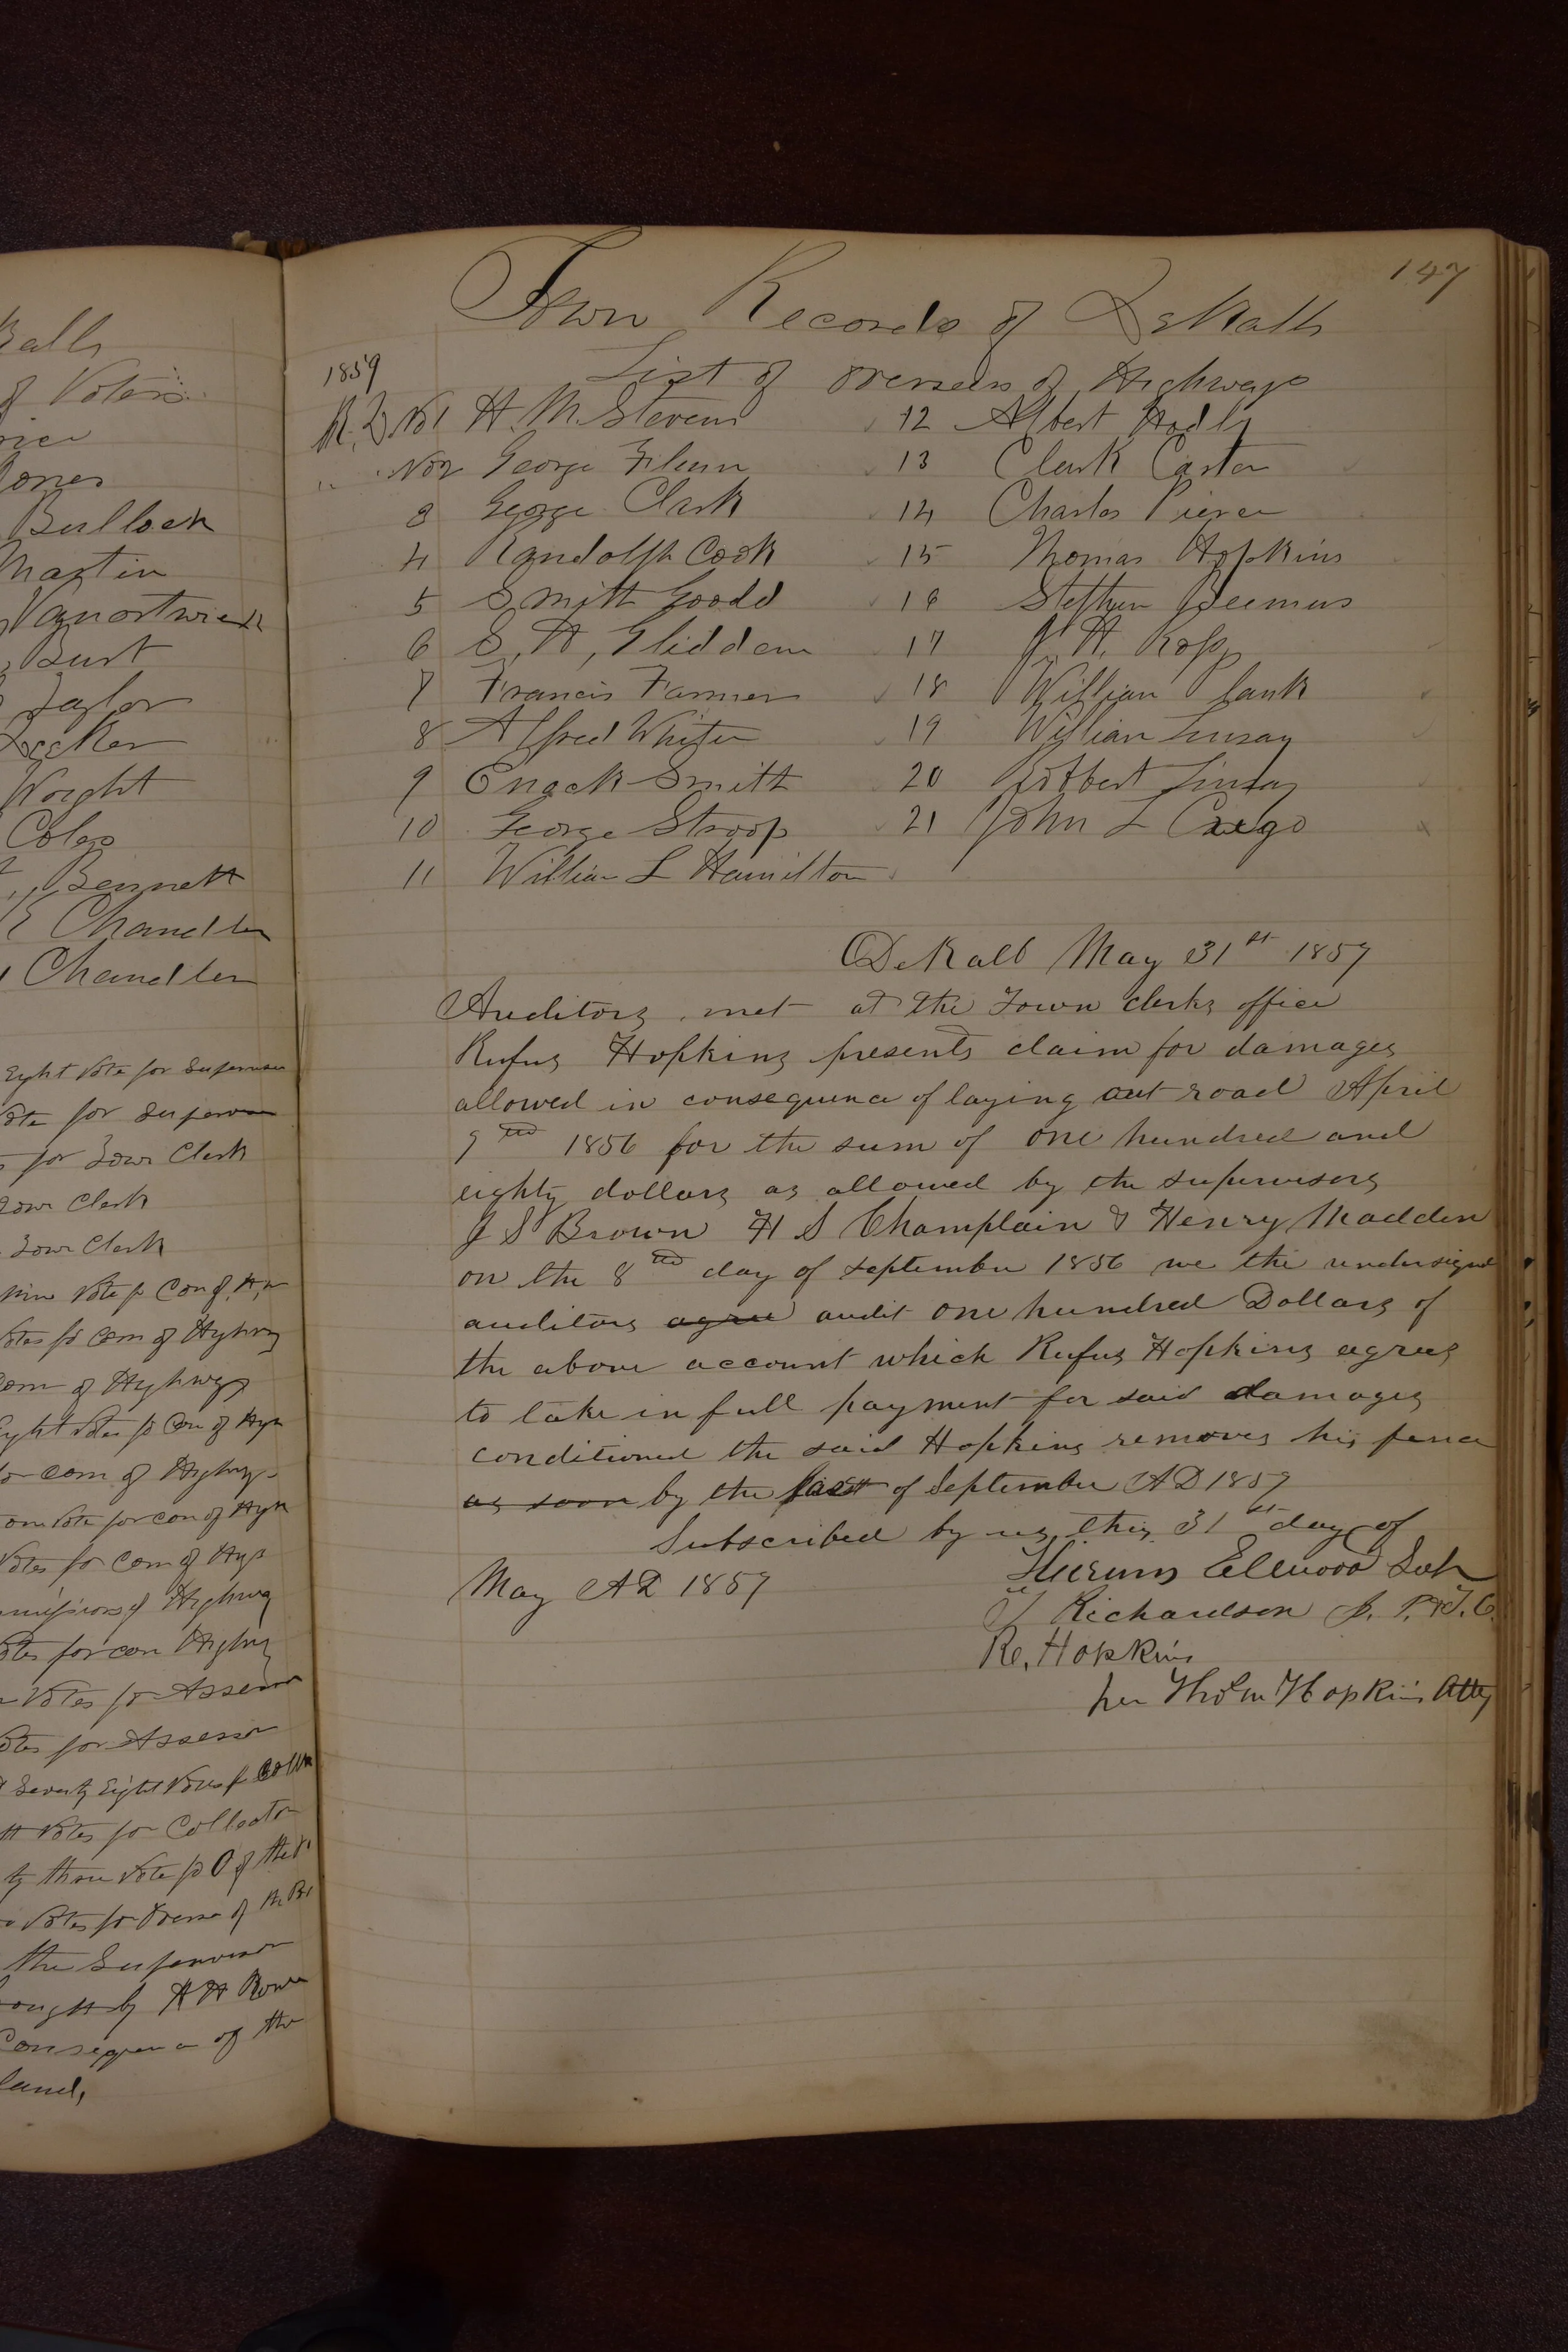 alb
of Voters
Jones
Bullock
Martin
Vanortwick
Burt
Taylor
Wright
Coleo
Bennett
Chandler
Chandler
Eight Vote for Supervisor
Vote for Supervisor
for Town Clerk
Town Clerk
Town Clerk
nine Vote for Com of H,w
Votes for Com of Highway
Com of Highways
Eight Votes for Com of Hys
for Com of Highways
one Vote for Com of Hys
Votes for Com of Hys
of Highway
Votes for com Highway
Votes for Assessor
Votes for Assessor
Seventy Eight Votes for Collr
Votes for Collector
ty three Vote for O of the
Votes for Oversr of the
the Supervisor
ought by
Consequence of the
land,
147
Town Records of DeKalb
1859 List of overseers of Highways
R. D No 1 H. M. Stevens 12 Albert Hadly
" No 2 George Filson 13 Clark Caster
3 George Clark 14 Charles Pierce
4 Randolph Cook 15 Thomas Hopkins
5 Smith Goodd 16 Stephen Beemus
6 S, H, Glidden 17 J. H. Ross
7 Francis Farmer 18 William Plank
8 Alfred White 19 William Linsay
9 Enack Smith 20 Robbert Linsay
10 George Stroop 21 John L Crego
11 William L Hamilton
DeKalb May 31st 1859
Auditors met at the Town clerks office
Rufus Hopkins presents claim for damages
allowed in consequence of laying out road April
9th 1856 for the sum of one hundred and
eighty dollars as allowed by the supervisors
J S Brown H S Champlain & Henry Madden
on the 8th day of september 1856 we the undersigned
auditors agree audit one hundred Dollars of
the above account which Rufus Hopkins agrees
to take in full payment for said damages
conditioned the said Hopkins removes his fence
as soon by the first of September AD 1859
Subscribed by us this 31st day of
May AD 1859 Hierum Ellwood Sup
Richardson J. P. & T. C.
Ru. Hopkins
per Thos M Hopkins Atty